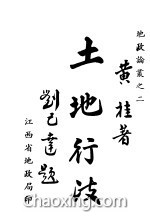 地政論叢之二
黃桂著
土地行政
劉己達題
江西省地政局印
chaoxing.com